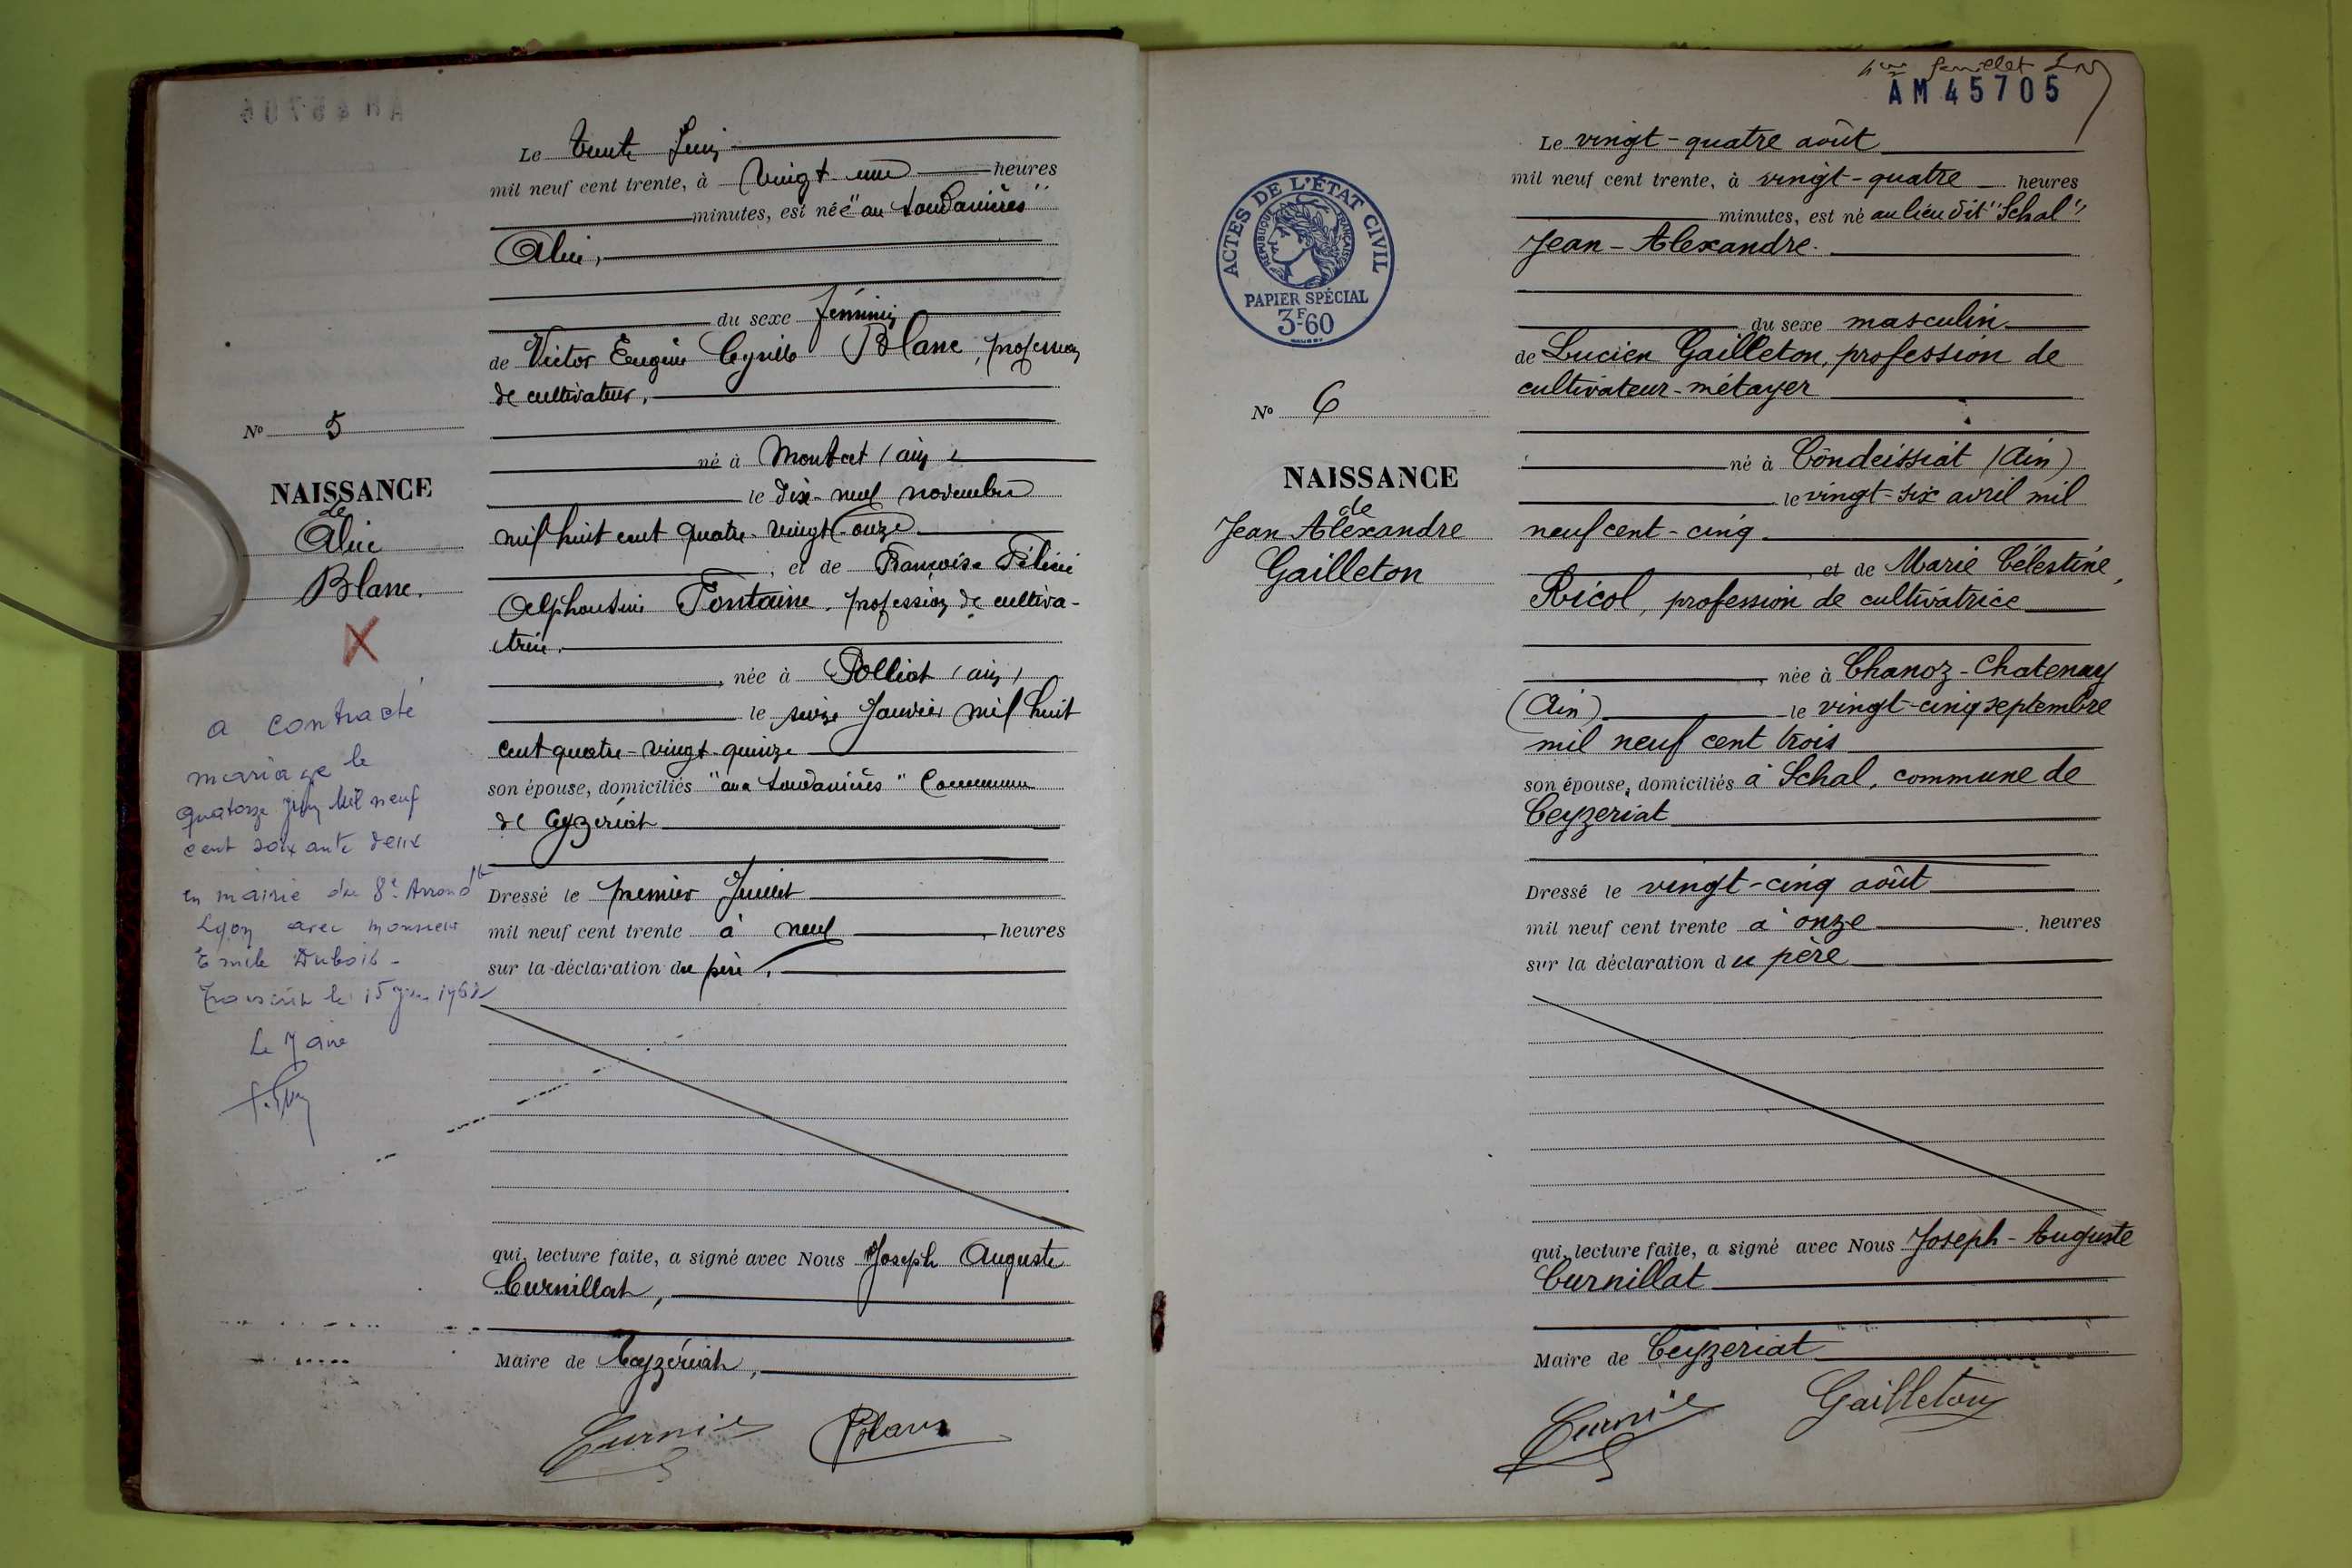 Le trente Juin
mil neuf cent trente, à vingt une heures
minutes, est née "au Soudanières"
Alice,
du sexe féminin
de Victor Eugène Cyrille Blanc, profession
de cultivateur,
né à Montcet (Ain),
le dix-neuf novembre
mil huit cent quatre-vingt-onze
, et de Françoise Félicie
Alphonsine Fontaine, profession de cultiva-
trice,
, née à Polliat (Ain)
le seize Janvier mil huit
cent quatre-vingt-quinze
son épouse, domiciliés "aux Soudanières" Commune
de Ceyzériat
Dressé le premier Juillet
mil neuf cent trente à neuf, heures
sur la déclaration du père,
qui, lecture faite, a signé avec Nous Joseph Auguste
Curnillat,
Maire de Ceyzériat,
Curnil Blanc
No 5
NAISSANCE
de
Alice
Blanc.
X
a contracté
mariage le
quatorze Juin Mil neuf
cent soixante deux
en mairie du 8e Arrondt
Lyon avec monsieur
Emile Dubois -
Transcrit le 15 Juin 1962
Le Maire
feuillet
AM45705
ACTES DE L'ÉTAT CIVIL
RÉPUBLIQUE FRANÇAISE
PAPIER SPÉCIAL
3F60
No 6
NAISSANCE
de
Jean Alexandre
Gailleton
Le vingt-quatre août
mil neuf cent trente, à vingt-quatre heures
minutes, est né au lieu dit "Schal"
Jean-Alexandre
du sexe masculin
de Lucien Gailleton, profession de
cultivateur-métayer
né à Condeissiat (Ain)
le vingt-six avril mil
neuf cent-cinq
, et de Marie Célestine
Ricol, profession de cultivatrice
, née à Chanoz-Chatenay
(Ain) le vingt-cinq septembre
mil neuf cent trois
son épouse, domiciliés à Schal, commune de
Ceyzeriat
Dressé le vingt-cinq août
mil neuf cent trente à onze, heures
sur la déclaration du père
qui, lecture faite, a signé avec Nous Joseph-Auguste
Curnillat
Maire de Ceyzeriat
Curnil Gailleton